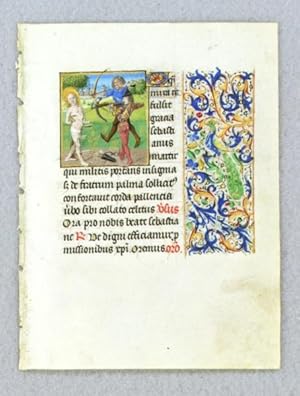 O q̃
mira re
fulsit
gracia
sebasti
anus
martir
qui militis portans insignia
s; de fratrum palma sollicit9
confortauit corda pallencia
ũbo sibi collato celitus V̾sus
Ora pro nobis beate sebastia
ne R Vt digni efficiamur p
missionibus xp̃i Oremus oro̾